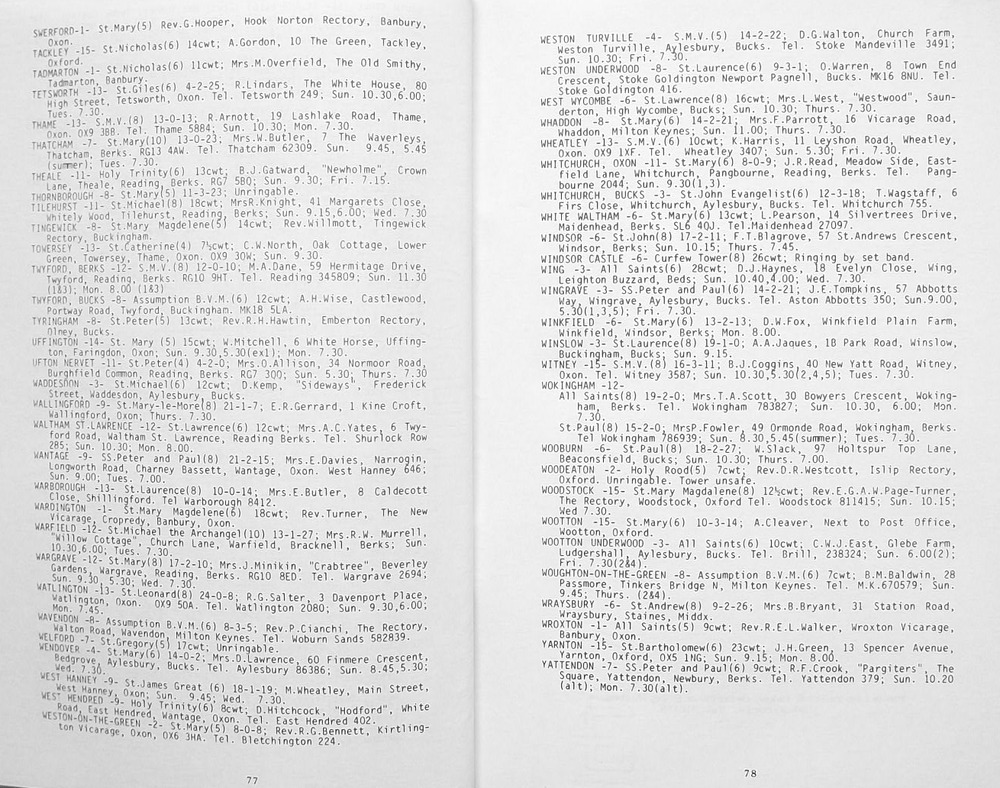 SWERFORD-1- St.Mary(5) Rev.G.Hooper, Hook Norton Rectory, Banbury,
Oxon.
TACKLEY -15- St.Nicholas(6) 14cwt; A.Gordon, 10 The Green, Tackley,
Oxford.
TADMARTON -1- St.Nicholas(6) 11cwt; Mrs.M.Overfield, The Old Smithy,
Tadmarton, Banbury.
TETSWORTH -13- St.Giles(6) 4-2-25; R.Lindars, The White House, 80
High Street, Tetsworth, Oxon. Tel. Tetsworth 249; Sun. 10.30,6.00;
Tues. 7.30.
THAME -13- S.M.V.(8) 13-0-13; R.Arnott, 19 Lashlake Road, Thame,
Oxon. OX9 3BB. Tel. Thame 5884; Sun. 10.30; Mon. 7.30.
THATCHAM -7- St.Mary(10) 13-0-23; Mrs.W.Butler, 7 The Waverleys,
Thatcham, Berks. RG13 4AW. Tel. Thatcham 62309. Sun. 9.45, 5.45
(summer); Tues. 7.30.
THEALE -11- Holy Trinity(6) 13cwt; B.J.Gatward, "Newholme", Crown
Lane, Theale, Reading, Berks. RG7 5BQ; Sun. 9.30; Fri. 7.15.
THORNBOROUGH -8- St.Mary(5) 11-3-23; Unringable.
TILEHURST -11- St.Michael(8) 18cwt; MrsR.Knight, 41 Margarets Close,
Whitely Wood, Tilehurst, Reading, Berks; Sun. 9.15,6.00; Wed. 7.30
TINGEWICK -8- St.Mary Magdelene(5) 14cwt; Rev.Willmott, Tingewick
Rectory, Buckingham.
TOWERSEY -13- St.Catherine(4) 7½cwt; C.W.North, Oak Cottage, Lower
Green, Towersey, Thame, Oxon. OX9 3QW; Sun. 9.30.
TWYFORD, BERKS -12- S.M.V.(8) 12-0-10; M.A.Dane, 59 Hermitage Drive,
Twyford, Reading, Berks. RG10 9HT. Tel. Reading 345809; Sun. 11.30
(1&3); Mon. 8.00 (1&3)
TWYFORD, BUCKS -8- Assumption B.V.M.(6) 12cwt; A.H.Wise, Castlewood,
Portway Road, Twyford, Buckingham. MK18 5LA.
TYRINGHAM -8- St.Peter(5) 13cwt; Rev.R.H.Hawtin, Emberton Rectory,
Olney, Bucks.
UFFINGTON -14- St. Mary (5) 15cwt; W.Mitchell, 6 White Horse, Uffing-
ton, Faringdon, Oxon; Sun. 9.30,5.30(ex1); Mon. 7.30.
UFTON NERVET -11- St.Peter(4) 4-2-0; Mrs.O.Allison, 34 Normoor Road,
Burghfield Common, Reading, Berks. RG7 3QQ; Sun. 5.30; Thurs. 7.30
WADDESDON -3- St.Michael(6) 12cwt; D.Kemp, "Sideways", Frederick
Street, Waddesdon, Aylesbury, Bucks.
WALLINGFORD -9- St.Mary-le-More(8) 21-1-7; E.R.Gerrard, 1 Kine Croft,
Wallingford, Oxon; Thurs. 7.30.
WALTHAM ST.LAWRENCE -12- St.Lawrence(6) 12cwt; Mrs.A.C.Yates, 6 Twy-
ford Road, Waltham St. Lawrence, Reading Berks. Tel. Shurlock Row
285; Sun. 10.30; Mon. 8.00.
WANTAGE -9- SS.Peter and Paul(8) 21-2-15; Mrs.E.Davies, Narrogin,
Longworth Road, Charney Bassett, Wantage, Oxon. West Hanney 646;
Sun. 9.00; Tues. 7.00.
WARBOROUGH -13- St.Laurence(8) 10-0-14; Mrs.E.Butler, 8 Caldecott
Close, Shillingford. Tel Warborough 8412.
WARDINGTON -1- St.Mary Magdelene(6) 18cwt; Rev.Turner, The New
Vicarage, Cropredy, Banbury, Oxon.
WARFIELD -12- St.Michael the Archangel(10) 13-1-27; Mrs.R.W. Murrell,
"Willow Cottage", Church Lane, Warfield, Bracknell, Berks; Sun.
10.30,6.00; Tues. 7.30.
WARGRAVE -12- St.Mary(8) 17-2-10; Mrs.J.Minikin, "Crabtree", Beverley
Gardens, Wargrave, Reading, Berks. RG10 8ED. Tel. Wargrave 2694;
Sun. 9.30, 5.30; Wed. 7.30.
WATLINGTON -13- St.Leonard(8) 24-0-8; R.G.Salter, 3 Davenport Place,
Watlington, Oxon. OX9 5QA. Tel. Watlington 2080; Sun. 9.30,6.00;
Mon. 7.45.
WAVENDON -8- Assumption B.V.M.(6) 8-3-5; Rev.P.Cianchi, The Rectory,
Walton Road, Wavendon, Milton Keynes. Tel. Woburn Sands 582839.
WELFORD -7- St.Gregory(5) 17cwt; Unringable.
WENDOVER -4- St.Mary(6) 14-0-2; Mrs.D.Lawrence, 60 Finmere Crescent,
Bedgrove, Aylesbury, Bucks. Tel. Aylesbury 86386; Sun. 8.45,5.30;
Wed. 7.30.
WEST HANNEY -9- St.James Great (6) 18-1-19; M.Wheatley, Main Street,
West Hanney, Oxon; Sun. 9.45; Wed. 7.30.
WEST HENDRED -9- Holy Trinity(6) 8cwt; D.Hitchcock, "Hodford", White
Road, East Hendred, Wantage, Oxon. Tel. East Hendred 402.
WESTON-ON-THE-GREEN -2- St.Mary(5) 8-0-8; Rev.R.G.Bennett, Kirtling-
ton Vicarage, Oxon, OX6 3HA. Tel. Bletchington 224.
77
WESTON TURVILLE -4- S.M.V.(5) 14-2-22; D.G.Walton, Church Farm,
Weston Turville, Aylesbury, Bucks. Tel. Stoke Mandeville 3491;
Sun. 10.30; Fri. 7.30.
WESTON UNDERWOOD -8- St.Laurence(6) 9-3-1; O.Warren, 8 Town End
Crescent, Stoke Goldington Newport Pagnell, Bucks. MK16 8NU. Tel.
Stoke Goldington 416.
WEST WYCOMBE -6- St.Lawrence(8) 16cwt; Mrs.L.West, "Westwood", Saun-
derton, High Wycombe, Bucks; Sun. 10.30; Thurs. 7.30.
WHADDON -8- St.Mary(6) 14-2-21; Mrs.F.Parrott, 16 Vicarage Road,
Whaddon, Milton Keynes; Sun. 11.00; Thurs. 7.30.
WHEATLEY -13- S.M.V.(6) 10cwt; K.Harris, 11 Leyshon Road, Wheatley,
Oxon. OX9 1XF. Tel. Wheatley 3407; Sun. 5.30; Fri. 7.30.
WHITCHURCH, OXON -11- St.Mary(6) 8-0-9; J.R.Read, Meadow Side, East-
field Lane, Whitchurch, Pangbourne, Reading, Berks. Tel. Pang-
bourne 2044; Sun. 9.30(1,3).
WHITCHURCH, BUCKS -3- St.John Evangelist(6) 12-3-18; T.Wagstaff, 6
Firs Close, Whitchurch, Aylesbury, Bucks. Tel. Whitchurch 755.
WHITE WALTHAM -6- St.Mary(6) 13cwt; L.Pearson, 14 Silvertrees Drive,
Maidenhead, Berks. SL6 4QJ. Tel.Maidenhead 27097.
WINDSOR -6- St.John(8) 17-2-11; F.T.Blagrove, 57 St.Andrews Crescent,
Windsor, Berks; Sun. 10.15; Thurs. 7.45.
WINDSOR CASTLE -6- Curfew Tower(8) 26cwt; Ringing by set band.
WING -3- All Saints(6) 28cwt; D.J.Haynes, 18 Evelyn Close, Wing,
Leighton Buzzard, Beds; Sun. 10.40,4.00; Wed. 7.30.
WINGRAVE -3- SS.Peter and Paul(6) 14-2-21; J.E.Tompkins, 57 Abbotts
Way, Wingrave, Aylesbury, Bucks. Tel. Aston Abbotts 350; Sun.9.00,
5.30(1,3,5); Fri. 7.30.
WINKFIELD -6- St.Mary(6) 13-2-13; D.W.Fox, Winkfield Plain Farm,
Winkfield, Windsor, Berks; Mon. 8.00.
WINSLOW -3- St.Laurence(8) 19-1-0; A.A.Jaques, 1B Park Road, Winslow,
Buckingham, Bucks; Sun. 9.15.
WITNEY -15- S.M.V.(8) 16-3-11; B.J.Coggins, 40 New Yatt Road, Witney,
Oxon. Tel. Witney 3587; Sun. 10.30,5.30(2,4,5); Tues. 7.30.
WOKINGHAM -12-
All Saints(8) 19-2-0; Mrs.T.A.Scott, 30 Bowyers Crescent, Woking-
ham, Berks. Tel. Wokingham 783827; Sun. 10.30, 6.00; Mon.
7.30.
St.Paul(8) 15-2-0; MrsP.Fowler, 49 Ormonde Road, Wokingham, Berks.
Tel Wokingham 786939; Sun. 8.30,5.45(summer); Tues. 7.30.
WOOBURN -6- St.Paul(8) 18-2-27; W.Slack, 97 Holtspur Top Lane,
Beaconsfield, Bucks; Sun. 10.30; Thurs. 7.00.
WOODEATON -2- Holy Rood(5) 7cwt; Rev.D.R.Westcott, Islip Rectory,
Oxford. Unringable. Tower unsafe.
WOODSTOCK -15- St.Mary Magdalene(8) 12½cwt; Rev.E.G.A.W.Page-Turner,
The Rectory, Woodstock, Oxford Tel. Woodstock 811415; Sun. 10.15;
Wed 7.30.
WOOTTON -15- St.Mary(6) 10-3-14; A.Cleaver, Next to Post Office,
Wootton, Oxford.
WOOTTON UNDERWOOD -3- All Saints(6) 10cwt; C.W.J.East, Glebe Farm,
Ludgershall, Aylesbury, Bucks. Tel. Brill, 238324; Sun. 6.00(2);
Fri. 7.30(2&4).
WOUGHTON-ON-THE-GREEN -8- Assumption B.V.M.(6) 7cwt; B.M.Baldwin, 28
Passmore, Tinkers Bridge N, Milton Keynes. Tel. M.K.670579; Sun.
9.45; Thurs. (2&4).
WRAYSBURY -6- St.Andrew(8) 9-2-26; Mrs.B.Bryant, 31 Station Road,
Wraysbury, Staines, Middx.
WROXTON -1- All Saints(5) 9cwt; Rev.R.E.L.Walker, Wroxton Vicarage,
Banbury, Oxon.
YARNTON -15- St.Bartholomew(6) 23cwt; J.H.Green, 13 Spencer Avenue,
Yarnton, Oxford, OX5 1NG; Sun. 9.15; Mon. 8.00.
YATTENDON -7- SS.Peter and Paul(6) 9cwt; R.F.Crook, "Pargiters", The
Square, Yattendon, Newbury, Berks. Tel. Yattendon 379; Sun. 10.20
(alt); Mon. 7.30(alt).
78